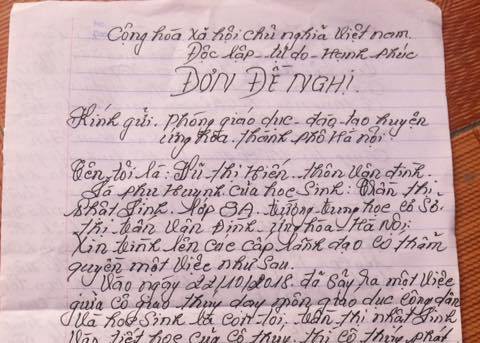 Cộng hòa xã hội chủ nghĩa Việt nam.
Độc lập - tự do - Hạnh phúc
ĐƠN ĐỀ NGHỊ.
Kính gửi. Phòng giáo dục - đào tạo huyện
ứng hòa. thành phố Hà nội.
Tên tôi là: Vũ thị Hiến. thôn Vân đình.
Là phụ Huynh của học Sinh: Trần thị
nhất Linh. lớp 8A. trường trung học cơ Sở.
thị trấn Vân Đình - ứng hòa Hà Nội.
Xin trình lên các cấp lãnh đạo có thẩm
quyền một việc như Sau.
Vào ngày 22/10/2018 đã Sảy ra một việc
giữa cô giáo thúy dạy môn giáo dục công dân
Và học Sinh là con tôi. trần thị nhất Linh
Vào tiết học của cô thúy, thì cô thúy phát